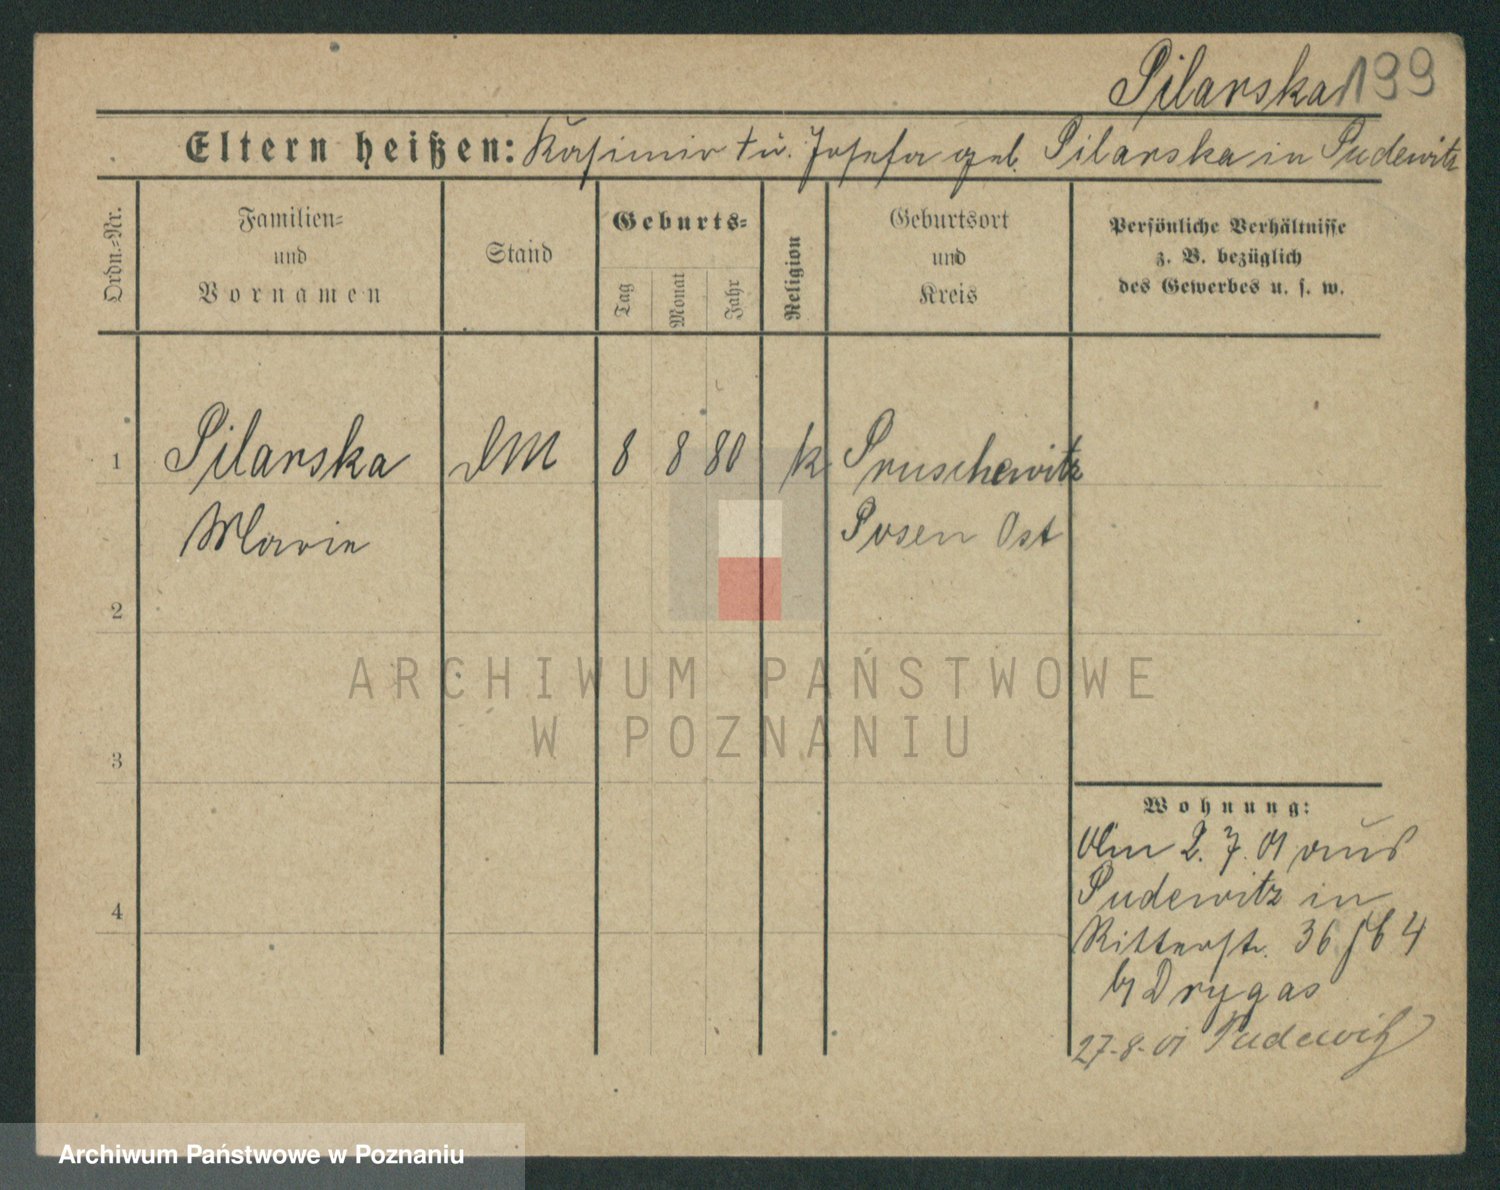 Pilarska 199
Eltern heißen: Kasimir † u. Josefa geb. Pilarska in Pudewitz
Ordn.-Nr.
Familien-
und
Vornamen
Stand
Geburts-
Tag
Monat
Jahr
Religion
Geburtsort
und
Kreis
Persönliche Verhältnisse
z. B. bezüglich
des Gewerbes u. s. w.
1 Pilarska DM 8 8 80 k Pruschewitz
Marie Posen Ost
2
3
4
ARCHIWUM PAŃSTWOWE
W POZNANIU
Wohnung:
Am 2. 7. 01 aus
Pudewitz in
Ritterstr. 36 4
b/ Drygas
27-8-01 Pudewitz
Archiwum Państwowe w Poznaniu